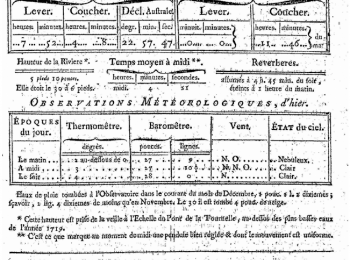 Lever. Coucher. Décl. Australe Lever. Coucher.
heures, minutes. heures. minutes. degr. min. sec. minutes. heures. minutes.
7 52 4 8 22. 57. 47
Hauteur de la Riviere*. Temps moyen à midi**. Reverberes.
5 pieds 10 pouces. heures. minutes. secondes. allumés à 4 h. 45 min. du soir,
Elle étoit le 30 à 6 pieds. midi. 4 21 éteints à 1 heure du matin.
OBSERVATIONS MÉTÉOROLOGIQUES, d'hier.
ÉPOQUES Thermomètre. Baromètre. Vent. ÉTAT du ciel.
du jour.
degrés. pouces. lignes.
Le matin 2 au-dessous de 0. 27 9 N. O. Nébuleux.
A midi 3 27 10 N. O. Clair
Le soir 4 28 0 N. Clair.
Eaux de pluie tombées à l'Observatoire dans le courant du mois de Décembre, 2 pouc. 2 dixiemes;
sçavoir, 2 lig. 4 dixiemes de moins qu'en Novembre. Le 30 il est tombé 4 pouc. de neige.
* Cette hauteur est prise de la veille à l'Echelle du Pont de la Tournelle, au-dessus des plus basses eaux
de l'Année 1719.
** C'est ce que marque au moment du midi une pendule bien réglée & dont le mouvement est uniforme.